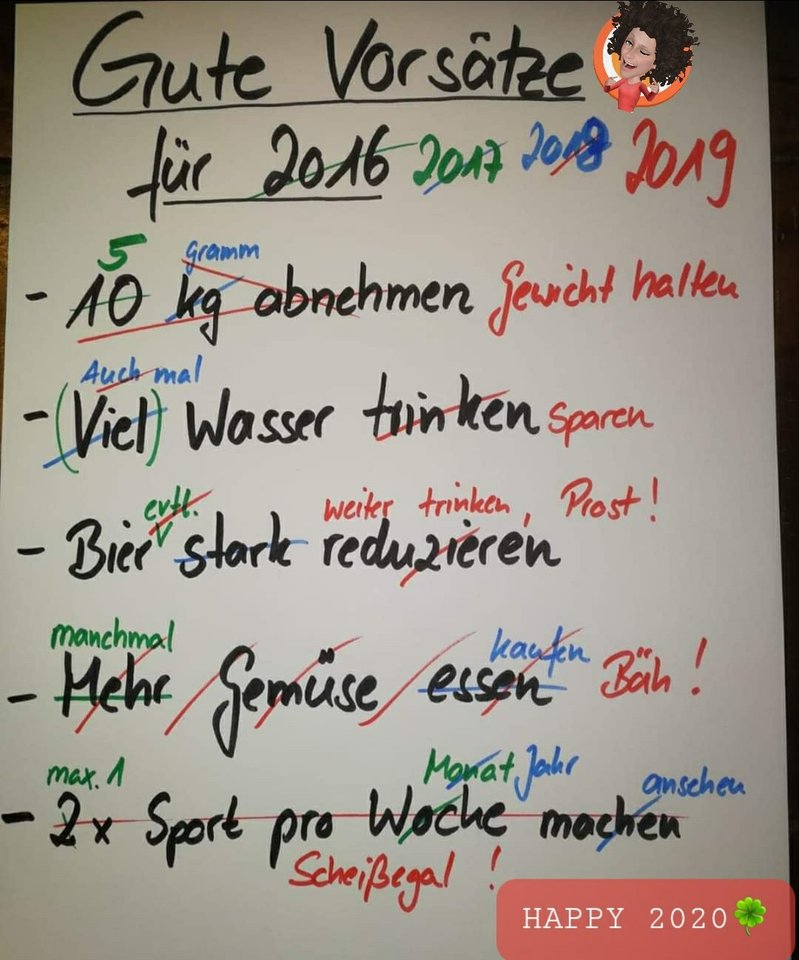 Gute Vorsätze
für 2016 2017 2018 2019
5 gramm
- 10 kg abnehmen Gewicht halten
Auch mal
- (Viel) Wasser trinken sparen
evtl. weiter trinken, Prost!
- Bier stark reduzieren
manchmal kaufen
- Mehr Gemüse essen Bäh!
max. 1 Monat Jahr anschen
- 2x Sport pro Woche machen
Scheißegal !
HAPPY 2020🍀